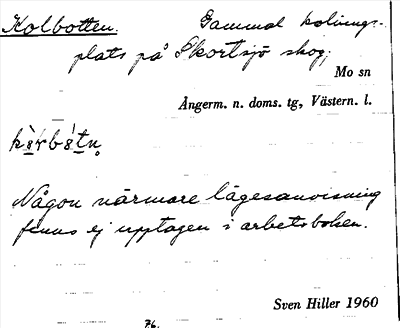 Kolbotten. Gammal kolnings-
plats på Skortsjö skog;
Mo sn
Ångerm. n. doms. tg, Västern. l.
Någon närmare lägesanvisning
finns ej upptagen i arbetsboken.
Sven Hiller 1960
76.